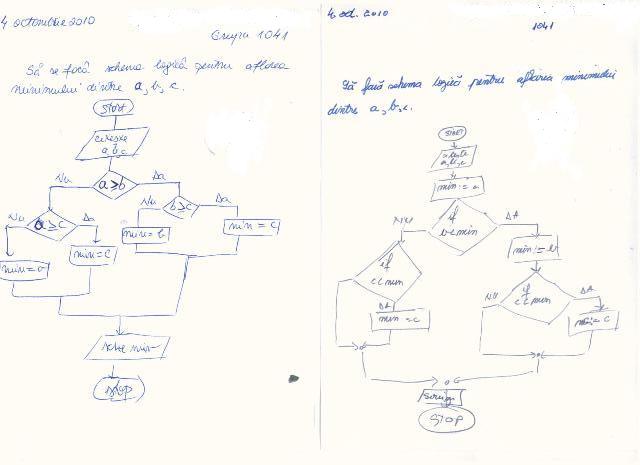 4 octombrie 2010
Grupa 1041
Să se facă schema logică pentru aflarea
minimului dintre a, b, c.
Start
citește
a, b, c
Nu
a≥b
Da
Nu
a≥c
Da
Nu
b≥c
Da
min=a
min=c
min=b
min=c
scrie min
stop
4. oct. 2010
1041
Să facă schema logică pentru aflarea minimului
dintre a, b, c.
START
citește
a, b, c
min:=a
NU
if
b<min
DA
NU
if
c<min
DA
min:=c
min:=b
NU
if
c<min
DA
min:=c
STOP